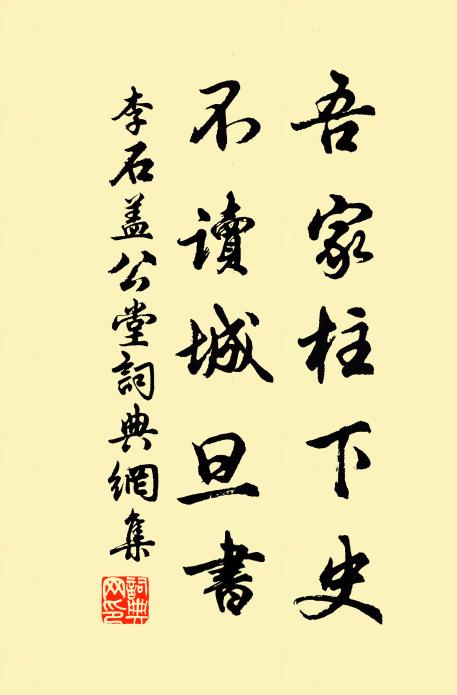 吾家柱下史
不讀城旦書
李石盖公堂詞典網集
詞典网印